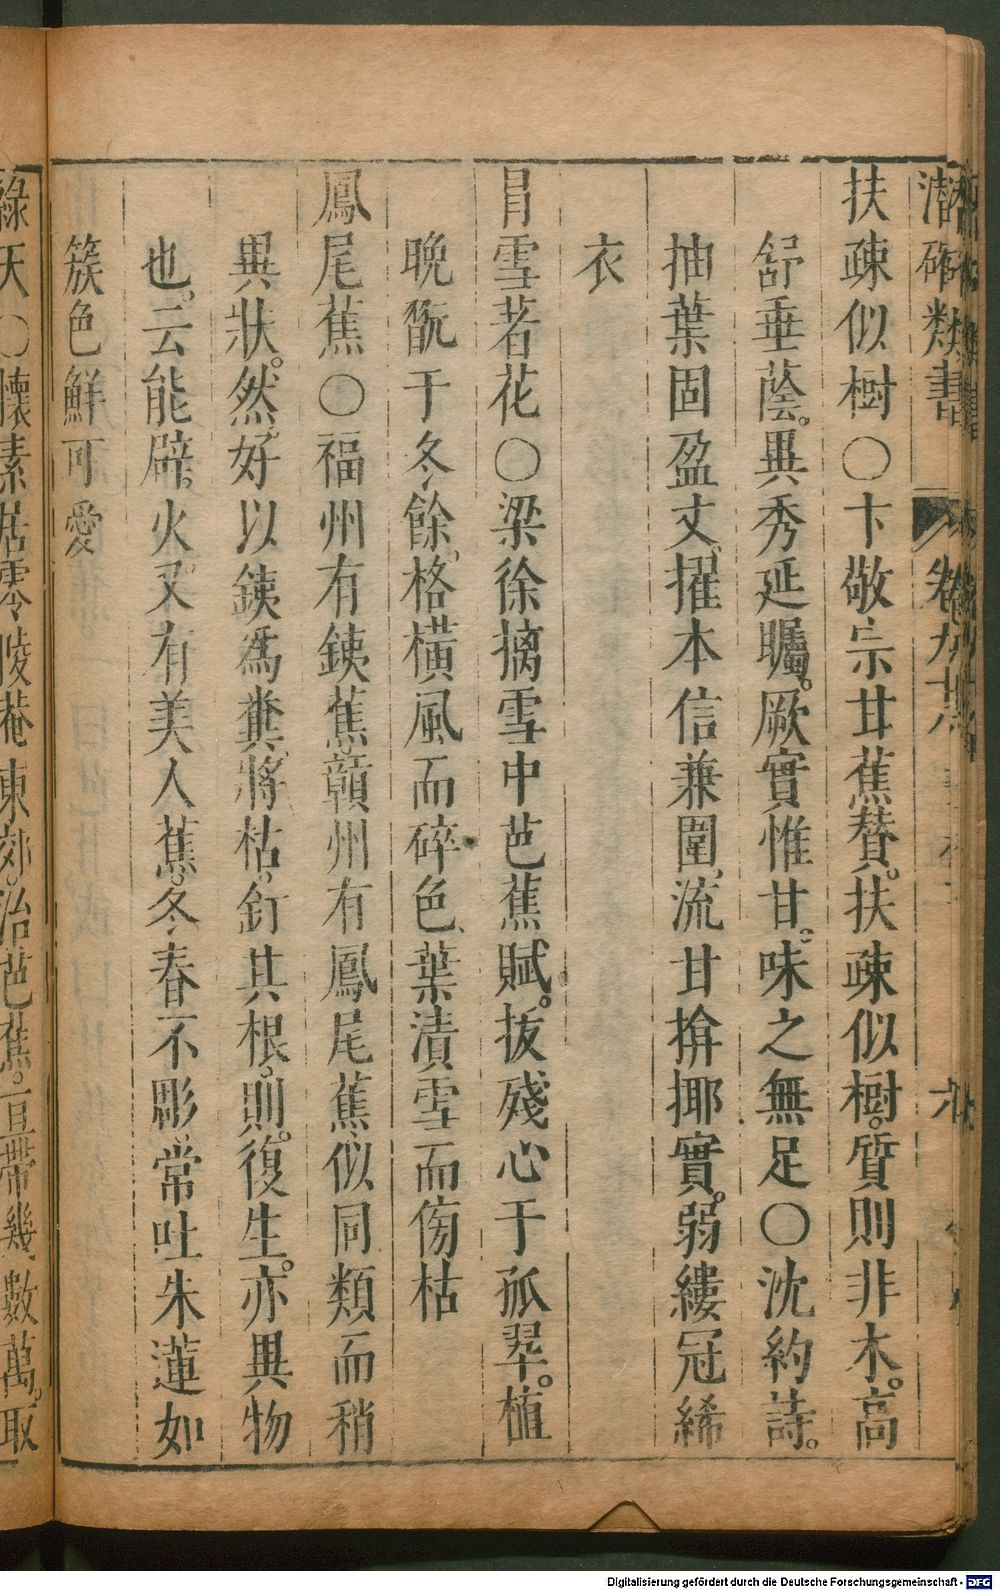 潛確類書 卷九十
扶疎似樹〇卞敬宗甘蕉贊。扶疎似樹。質則非木。高
舒垂蔭。異秀延矚。厥實惟甘。味之無足〇沈約詩。
抽葉固盈丈。擢本信兼圍。流甘揜椰實。弱縷冠絺
衣
冐雪著花〇梁徐摛雪中芭蕉賦。拔殘心于孤翠。植
晚翫于冬餘。格橫風而碎色、葉漬雪而傷枯
鳳尾蕉〇福州有銕蕉、贛州有鳳尾蕉、似同類而稍
異狀。然好以銕爲糞、將枯、釘其根、則復生。亦異物
也。云能辟火。又有美人蕉。冬春不彫、常吐朱蓮如
簇色鮮可愛
綠天〇懷素居零陵菴東郊。治芭蕉。亘帶幾數萬。取
Digitalisierung gefördert durch die Deutsche Forschungsgemeinschaft - DFG